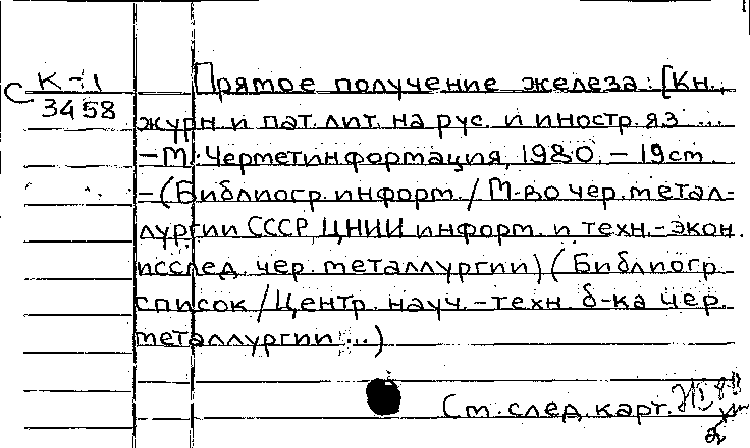 С К-1
3458
Прямое получение железа: [Кн.,
журн. и пат. лит. на рус. и иностр. яз ...
- М.: Черметинформация, 1980. - 19 см.
- (Библиогр. информ. / М-во чер. метал-
лургии СССР, ЦНИИ информ. и техн.-экон.
исслед. чер. металлургии) (Библиогр.
список / Центр. науч.-техн. б-ка чер.
металлургии ...)
См. след. карт.